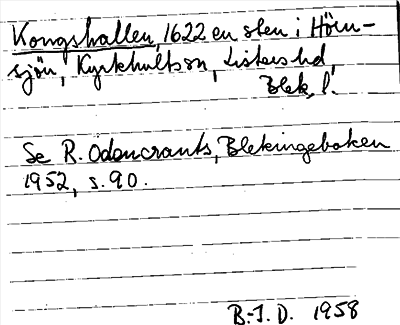 Kongshallen, 1622 en sten i Hörn-
sjön, Kyrkhults sn, Listers hd,
Blek. l.
Se R. Odencrants, Blekingeboken
1952, s. 90.
B.-I. D. 1958